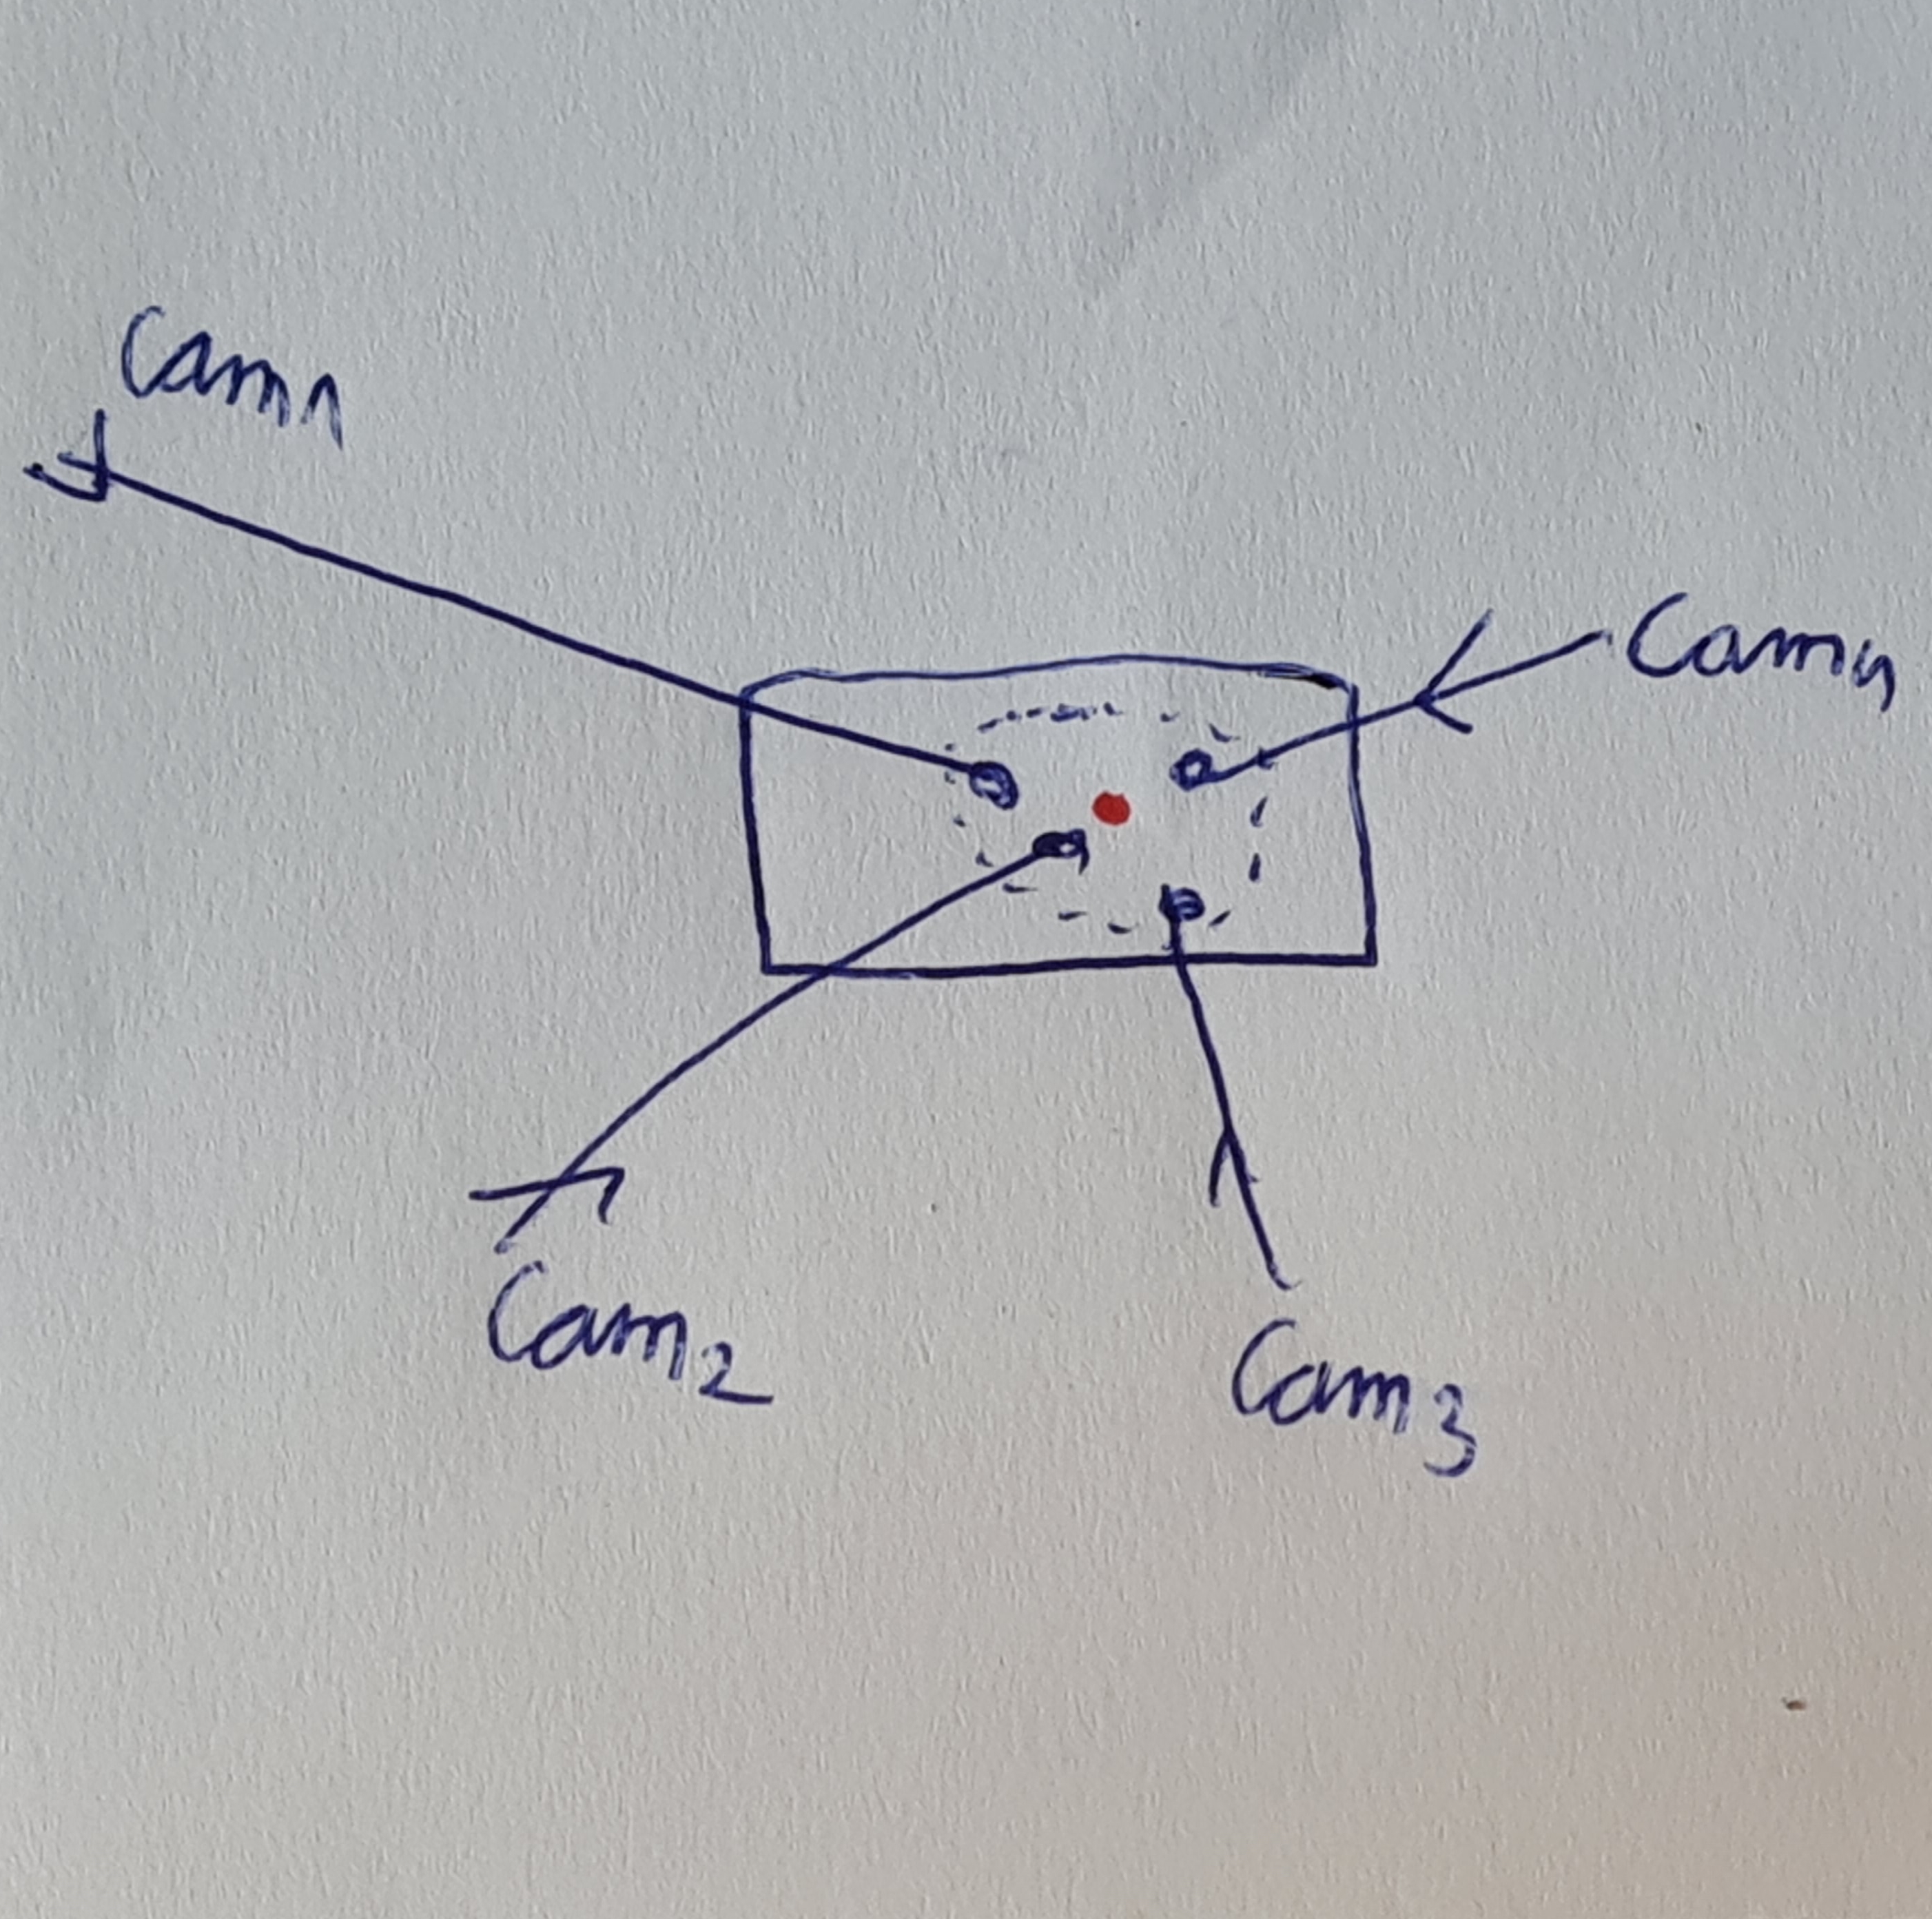 Cam1
Cam4
Cam2
Cam3